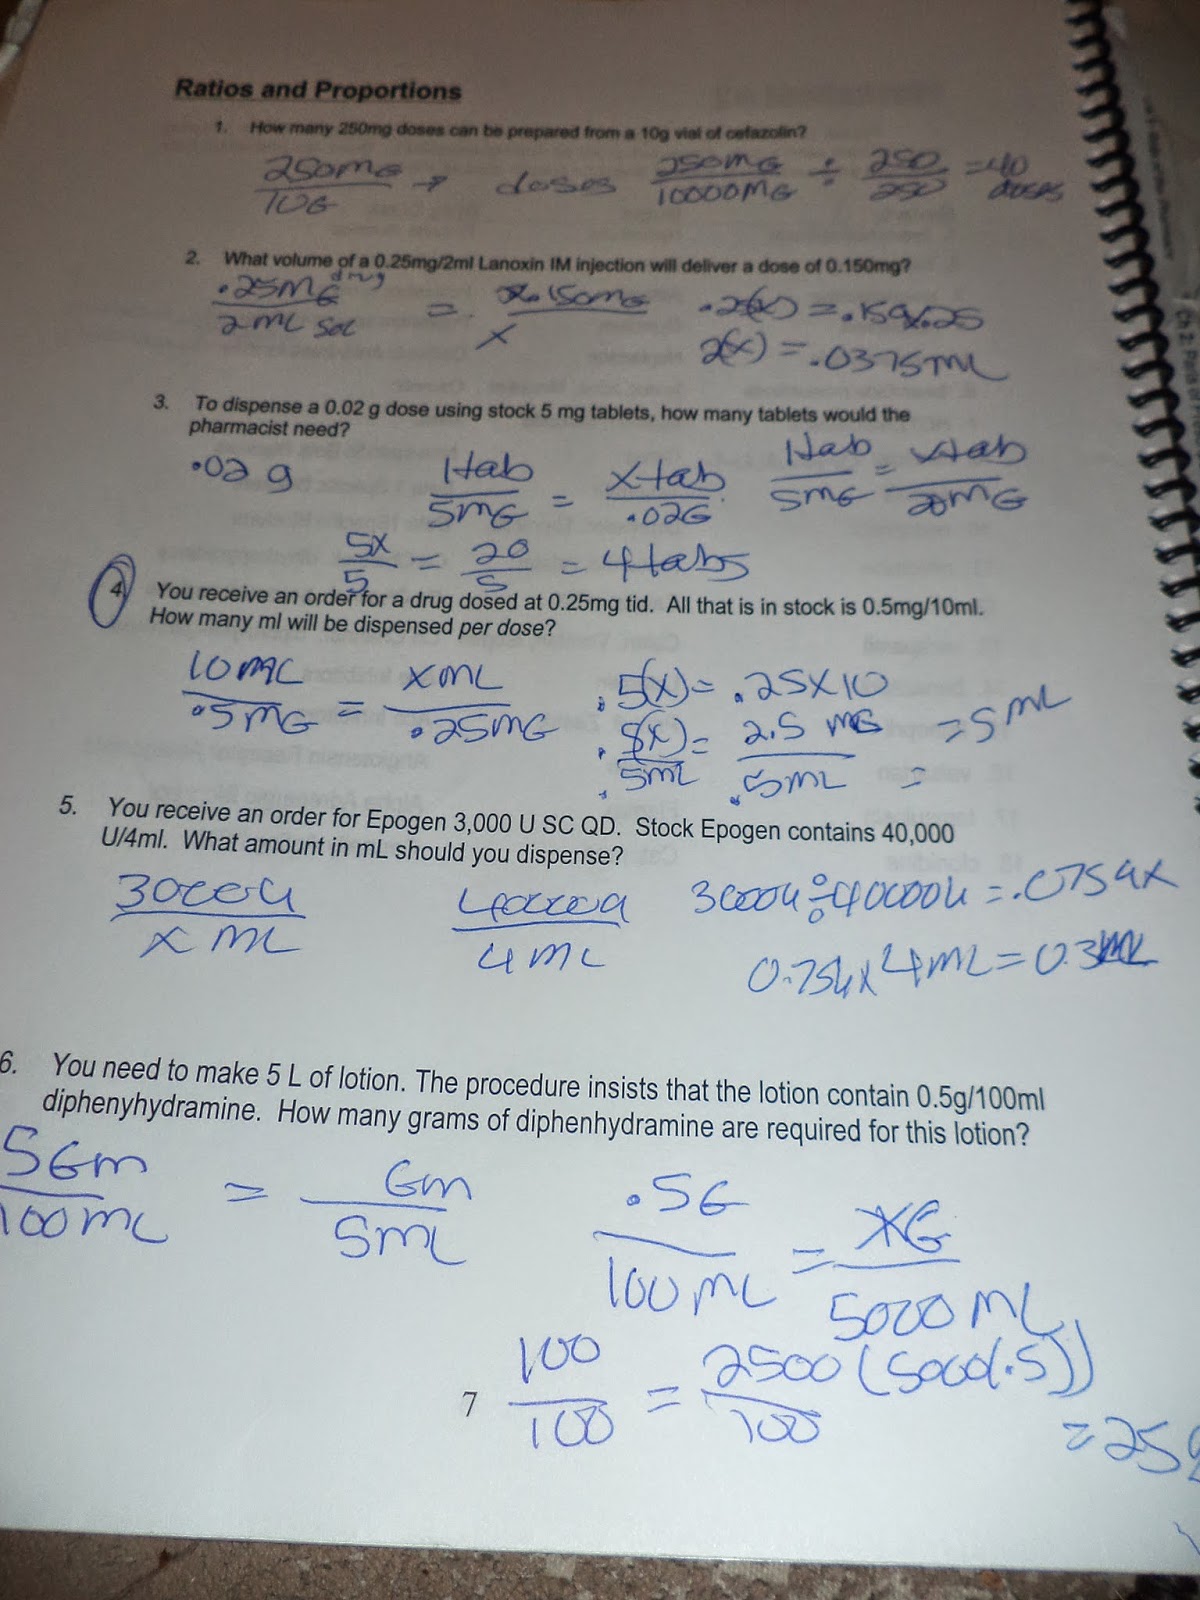 Ratios and Proportions
1. How many 250mg doses can be prepared from a 10g vial of cefazolin?
250MG/10G → doses 250MG/10000MG ÷ 250/250 = 40 doses
2. What volume of a 0.25mg/2ml Lanoxin IM injection will deliver a dose of 0.150mg?
.25MG drug/2ML sol = .150MG/X
2(x) = .0375ML
3. To dispense a 0.02 g dose using stock 5 mg tablets, how many tablets would the
pharmacist need?
.02 g 1tab/5MG = Xtab/.02G 1tab/5MG = Xtab/20MG
5X/5 = 20/5 = 4tabs
4. You receive an order for a drug dosed at 0.25mg tid. All that is in stock is 0.5mg/10ml.
How many ml will be dispensed per dose?
10ML/.5MG = XML/.25MG .5(X) = .25X10
.5(X)/.5ML = 2.5 MG/.5ML = 5 ML
5. You receive an order for Epogen 3,000 U SC QD. Stock Epogen contains 40,000
U/4ml. What amount in mL should you dispense?
3000u/X ML 40000u/4ML 3000u÷40000u = .075ux
0.75ux4ML=0.3ML
6. You need to make 5 L of lotion. The procedure insists that the lotion contain 0.5g/100ml
diphenyhydramine. How many grams of diphenhydramine are required for this lotion?
5Gm/100ML = Gm/5ML .5G/100ML = XG/5000ML
100/100 = 2500(5000(.5))/100
= 25g
7